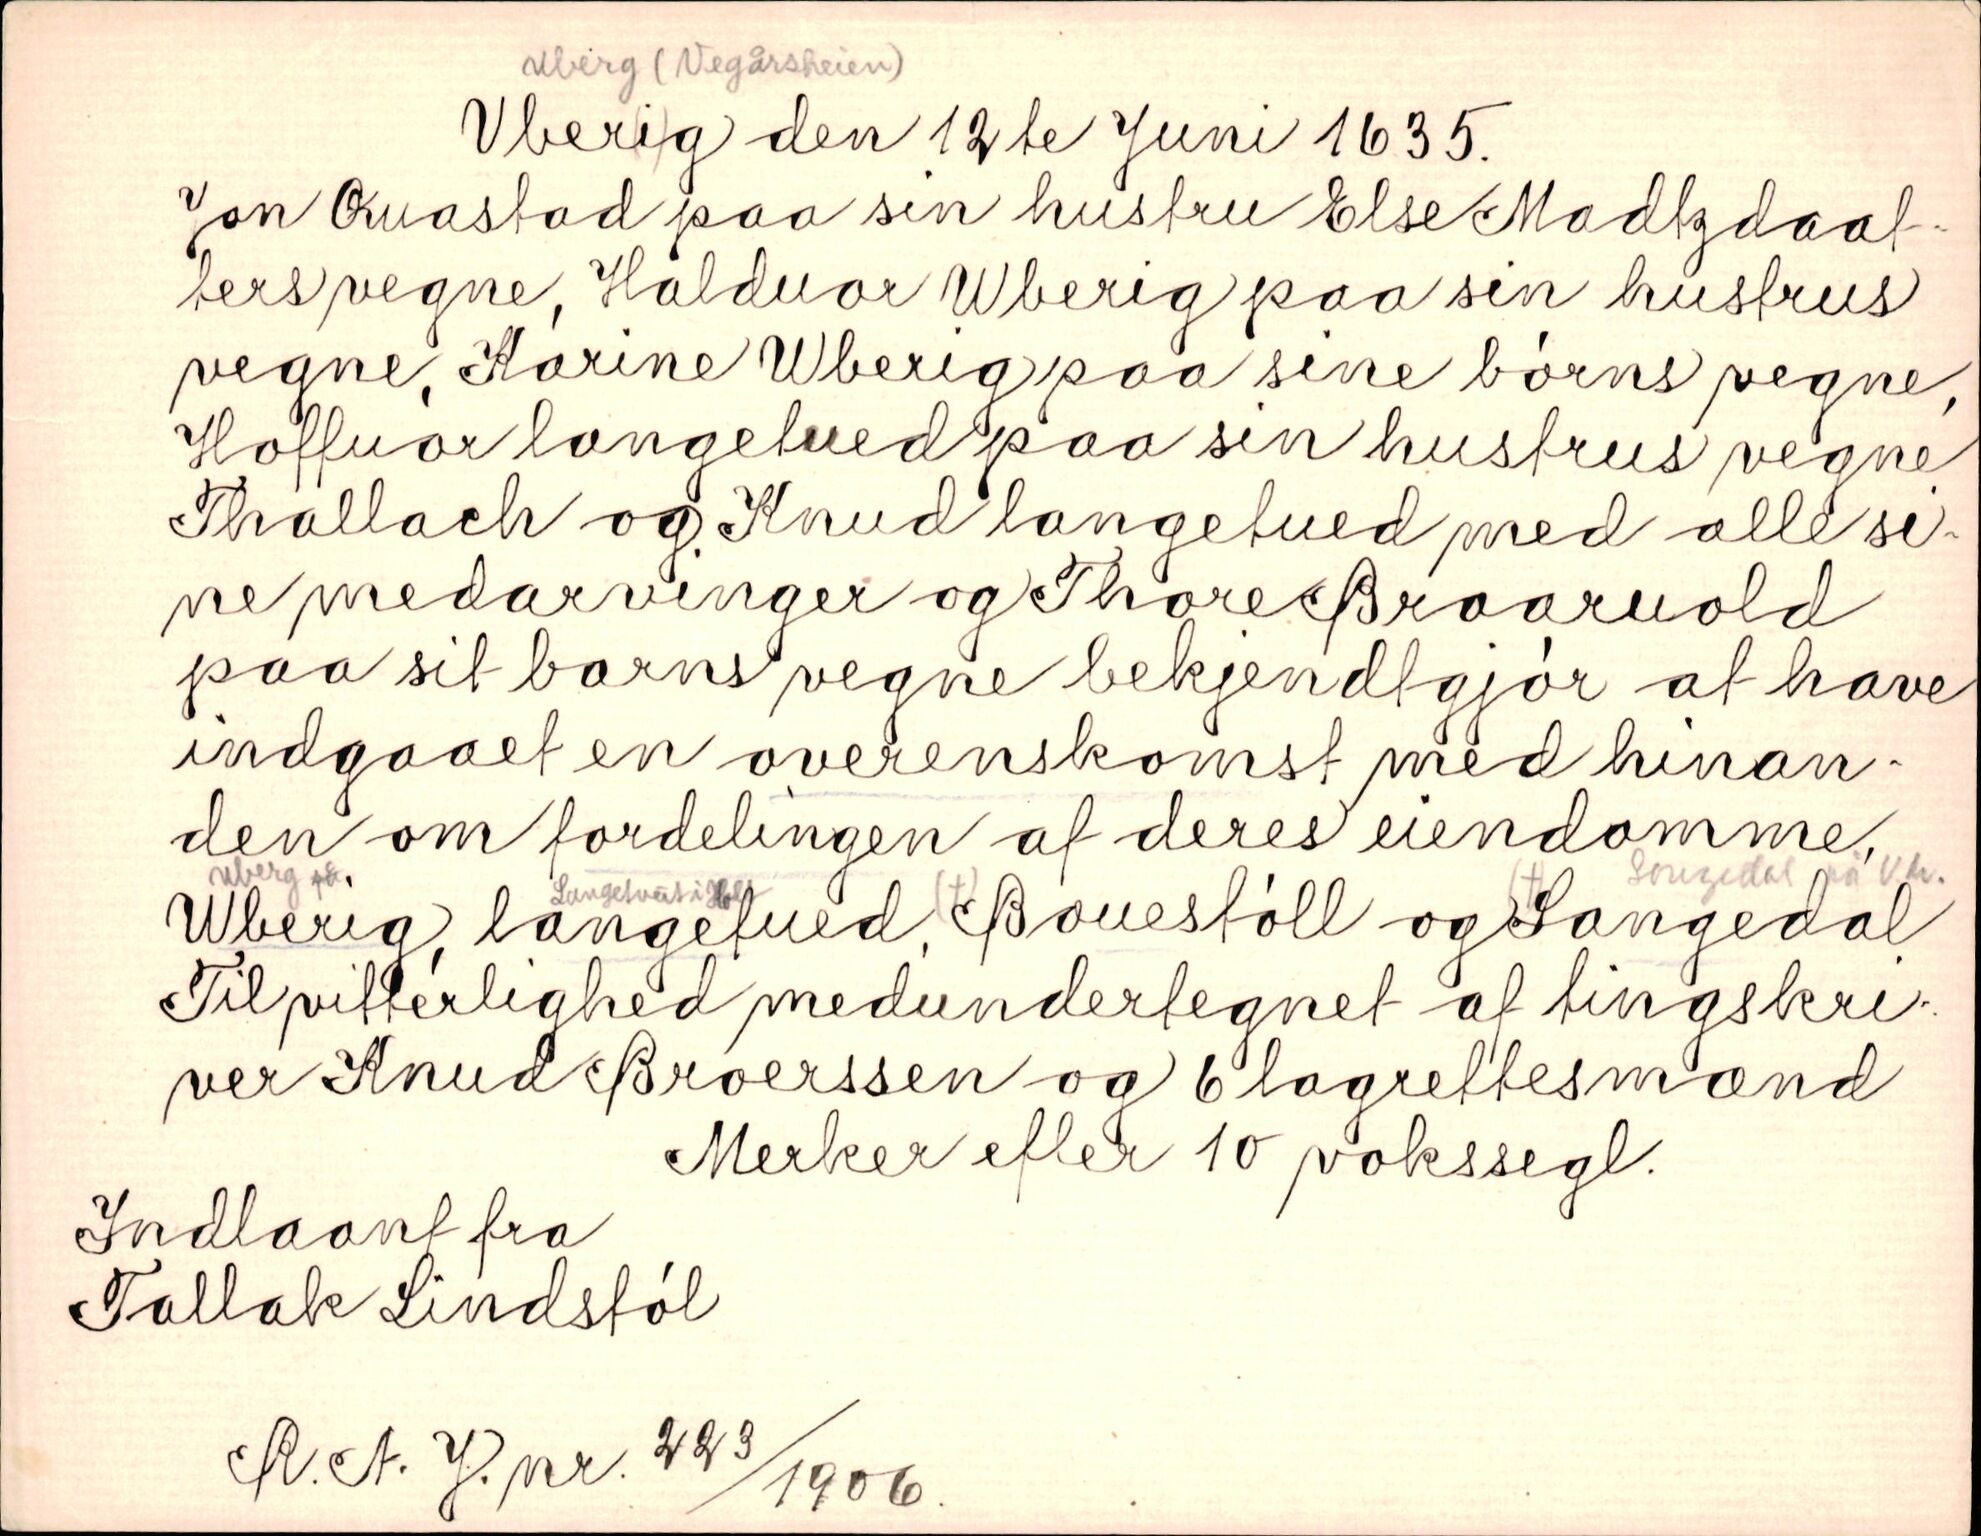 Uberg (Vegårsheien)
Vberig den 12te Juni 1635.
Jon Quastad paa sin hustru Else Madtzdaat-
ters vegne, Halduor Wberig paa sin hustrus
vegne, Karine Wberig paa sine børns vegne,
Hoffuor langetued paa sin hustrus vegne
Thallach og Knud langetued med alle si-
ne medarvinger og Thore Braaruold
paa sit barns vegne bekjendtgjør at have
indgaaet en overenskomst med hinan-
den om fordelingen af deres eiendomme,
Uberg Langetveit i Holt (†) (†) Songedal på V.h.
Wberig, langetued, Bouestøll og Sangedal
Til vitterlighed medundertegnet af tingskri-
ver Knud Broerssen og 6 lagrettesmænd
Merker efter 10 vokssegl.
Indlaant fra
Tallak Lindstøl
R. A. J. nr. 223/1906.